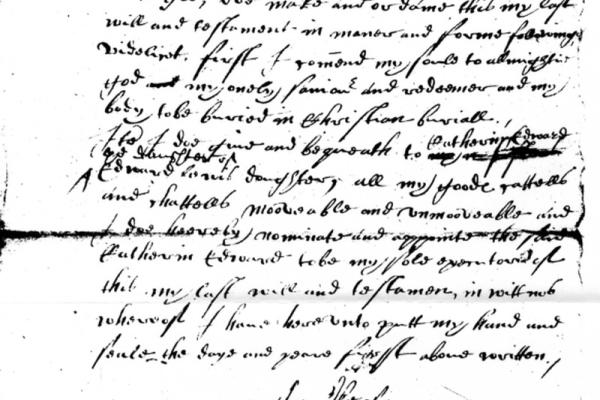 doe make and ordaine this my last
will and testament in maner and forme followinge
videlicet, first I com̃end my soule to allmightie
god my onely saviour and redeemer and my
body to be buried in Christian buriall.
Ite I doe give and bequeath to Katherin Edward
daughter of
Edward daughter, all my goods cattells
and chattells mooveable and unmooveable and
I doe heereby nominate and appointe the said
Katherin Edward to be my sole executores of
this my last will and testament, in wittnes
whereof I have here unto putt my hand and
seale the daye and yeare first above written.